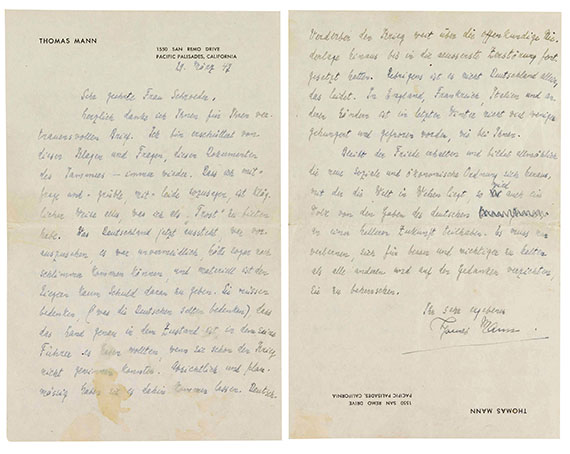 THOMAS MANN
1550 SAN REMO DRIVE
PACIFIC PALISADES, CALIFORNIA
21. März 47
Sehr geehrte Frau Schroeder,
herzlich danke ich Ihnen für Ihren ver-
trauensvollen Brief. Ich bin erschüttert von
diesen Klagen und Fragen, diesen Dokumenten
des Jammers — immer wieder. Dass ich mit-
frage und -grüble, mit-leide sozusagen, ist kläg-
licher Weise alles, was ich als „Trost“ zu bieten
habe. Was Deutschland jetzt aussteht, war vor-
auszusehen, es war unvermeidlich, hätte sogar noch
schlimmer kommen können und materiell ist den
Siegern kaum Schuld daran zu geben. Sie müssen
bedenken (was die Deutschen sollten bedenken) dass
das Land genau in dem Zustand ist, in dem seine
Führer es haben wollten, wenn sie schon den Krieg
nicht gewinnen konnten. Absichtlich und plan-
mässig haben sie es dahin kommen lassen. Deutsch-
Verderber den Krieg weit über die offenkundige Nie-
derlage hinaus bis in die äusserste Zerstörung fort-
gesetzt hatten. Uebrigens ist es nicht Deutschland allein,
das leidet. In England, Frankreich, Italien und an-
deren Ländern ist im letzten Winter nicht viel weniger
gehungert und gefroren worden, wie bei Ihnen.
Bleibt der Friede erhalten und bildet allmählich
die neue soziale und ökonomische Ordnung sich heraus,
mit der die Welt in Wehen liegt, so wird auch ein
Volk von den Gaben des deutschen
an einer helleren Zukunft teilhaben. Es muss nur
verlernen, sich für besser und wichtiger zu halten
als alle anderen und auf den Gedanken verzichten,
sie zu beherrschen.
Ihr sehr ergebener
Thomas Mann.
1550 SAN REMO DRIVE
PACIFIC PALISADES, CALIFORNIA
THOMAS MANN